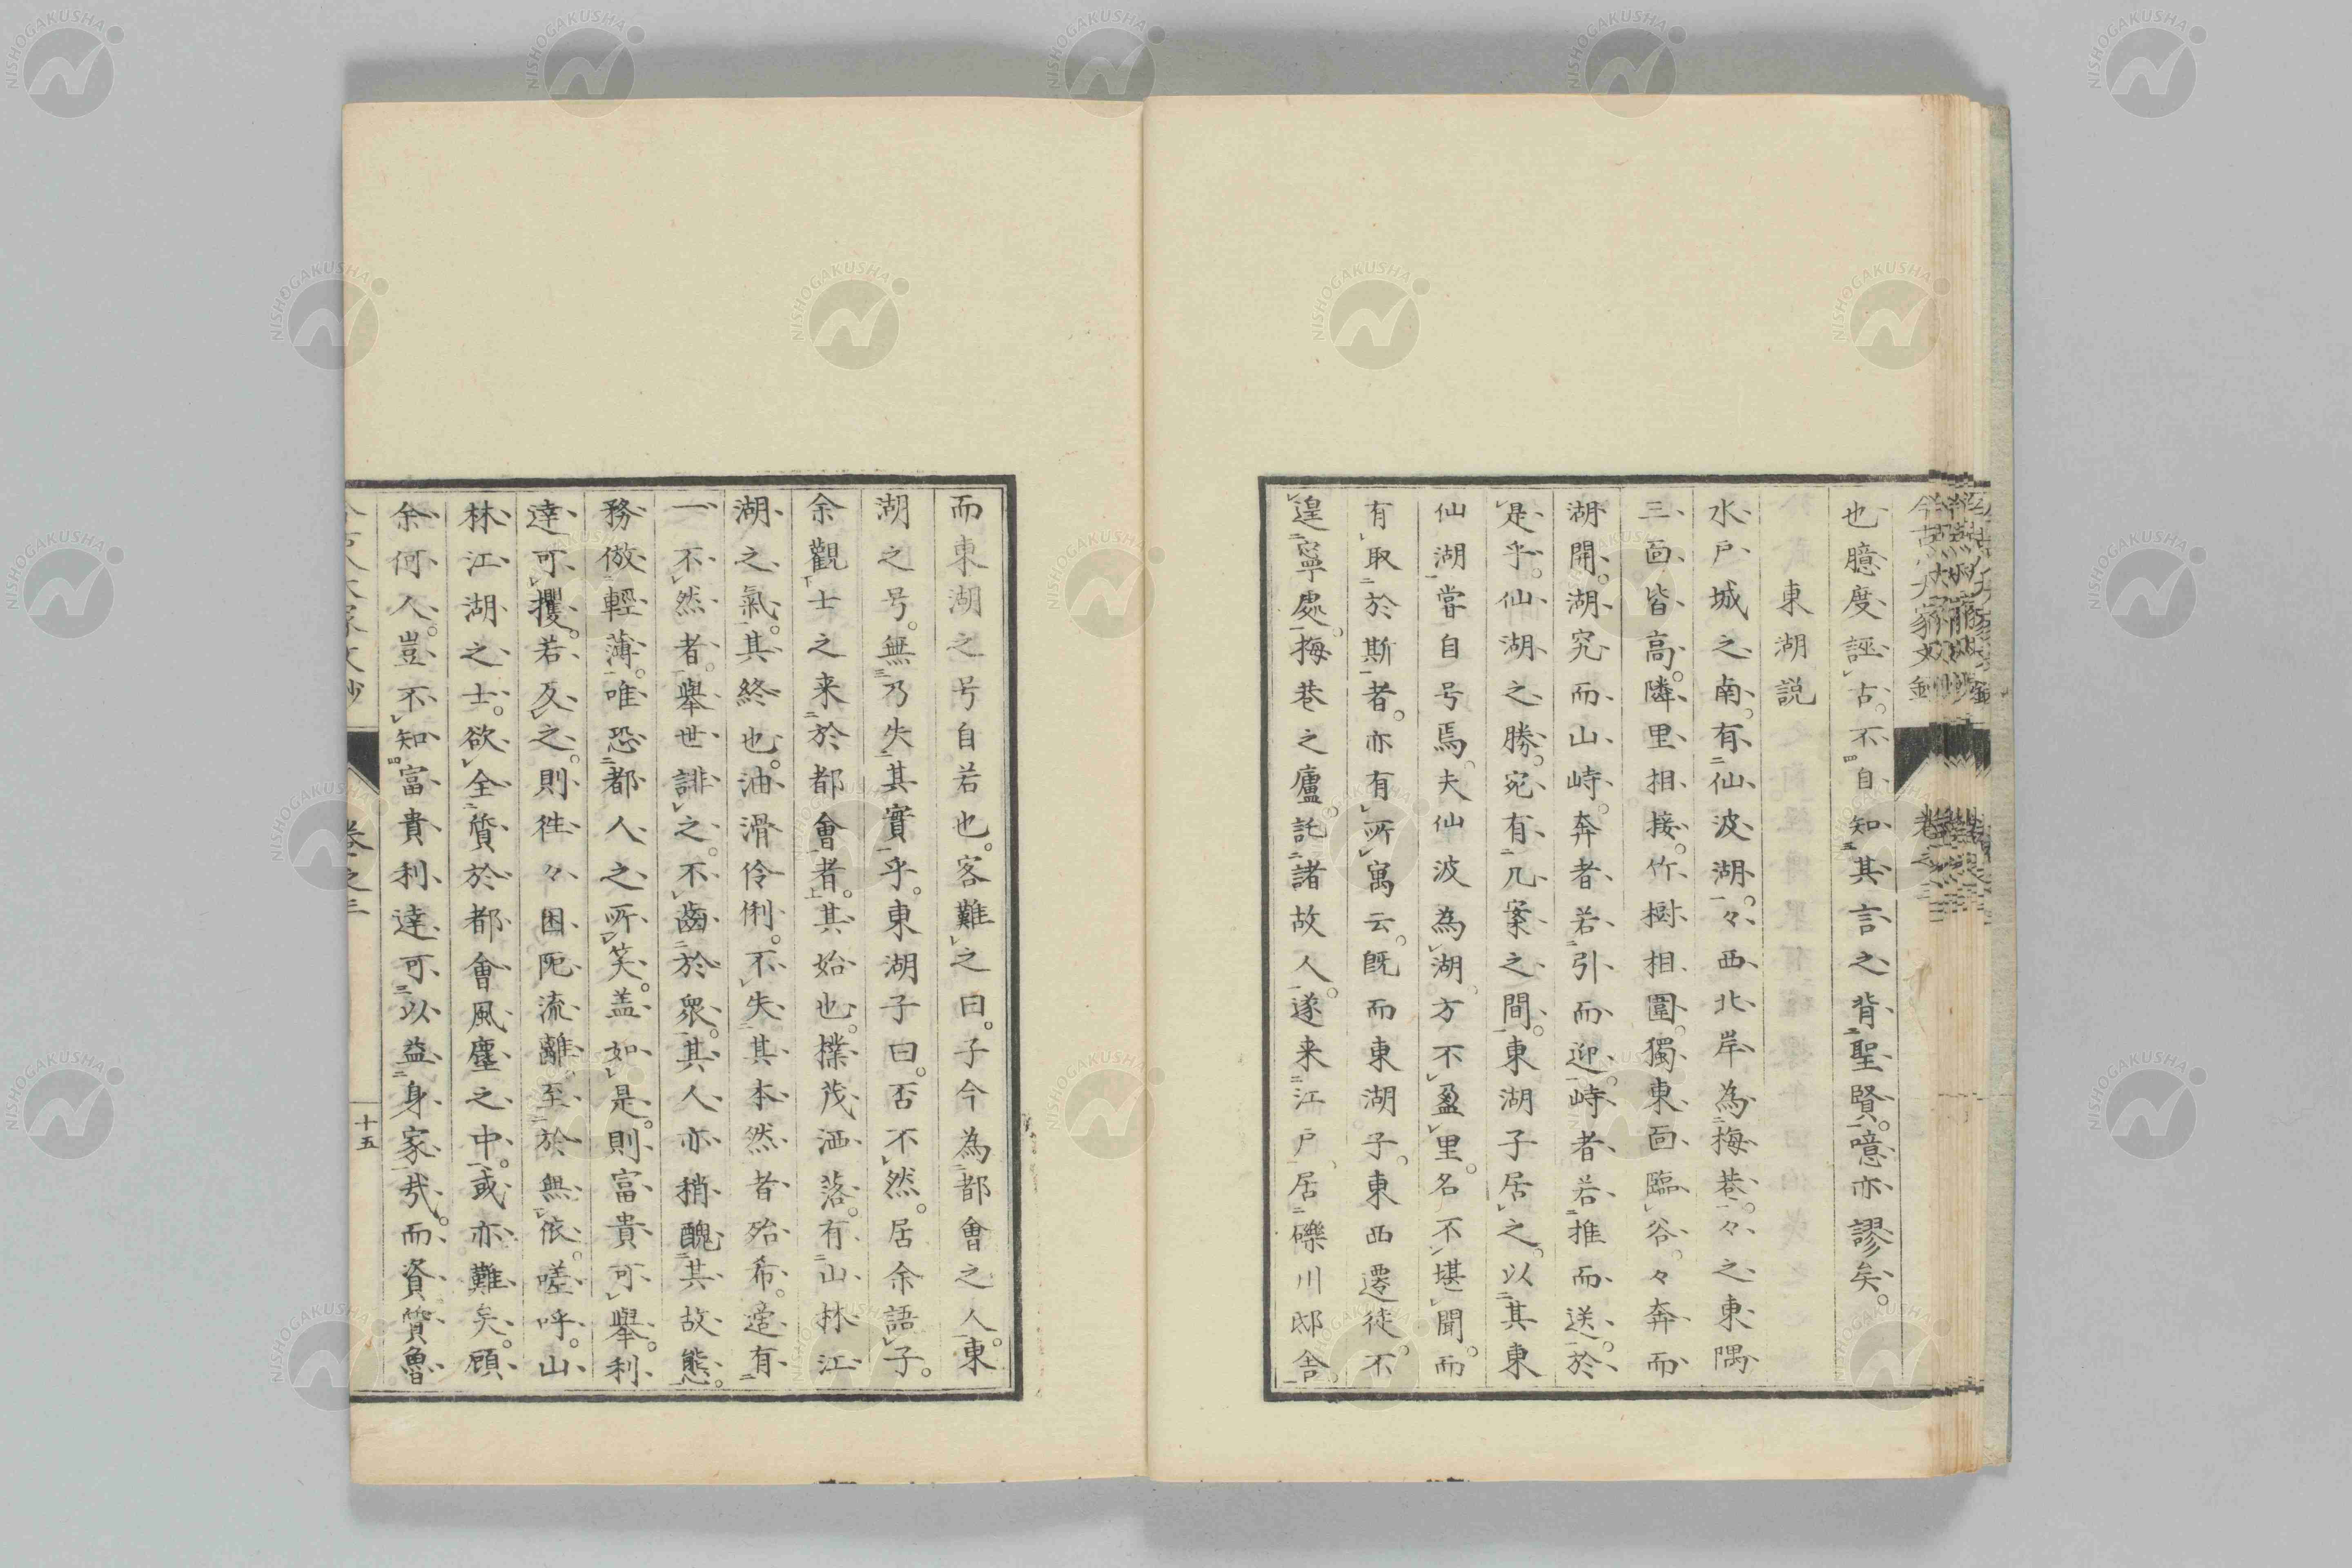 也臆度誣古。不自知其言之背聖賢。噫亦謬矣。
東湖説
水戸城之南。有仙波湖。々西北岸為梅巷。々之東隅
三面皆高。隣里相接。竹樹相圍。獨東面臨谷。々奔而
湖開。湖究而山峙。奔者若引而迎。峙者若推而送。於
是乎。仙湖之勝。宛有几案之間。東湖子居之。以其東
仙湖。甞自号焉。夫仙波為湖。方不盈里。名不堪聞。而
有取於斯者。亦有所寓云。既而東湖子。東西遷徙。不
遑寧處。梅巷之廬。託諸故人。遂来江戸。居礫川邸舎。
而東湖之号自若也。客難之曰。子今為都會之人。東
湖之号。無乃失其實乎。東湖子曰。否不然。居余語子。
余觀士之来於都會者。其始也。樸茂洒落。有山林江
湖之氣。其終也。油滑伶俐。不失其本然者殆希。啻有
一不然者。舉世誹之。不齒於衆。其人亦稍醜其故態。
務倣輕薄。唯恐都人之所笑。盖如是。則富貴可舉。利
達可攫。若反之。則徃々困阨流離。至於無依。嗟呼。山
林江湖之士。欲全質於都會風塵之中。或亦難矣。顧
余何人。豈不知富貴利達可以益身家哉。而資質魯
卷之三
十五
NISHOGAKUSHA